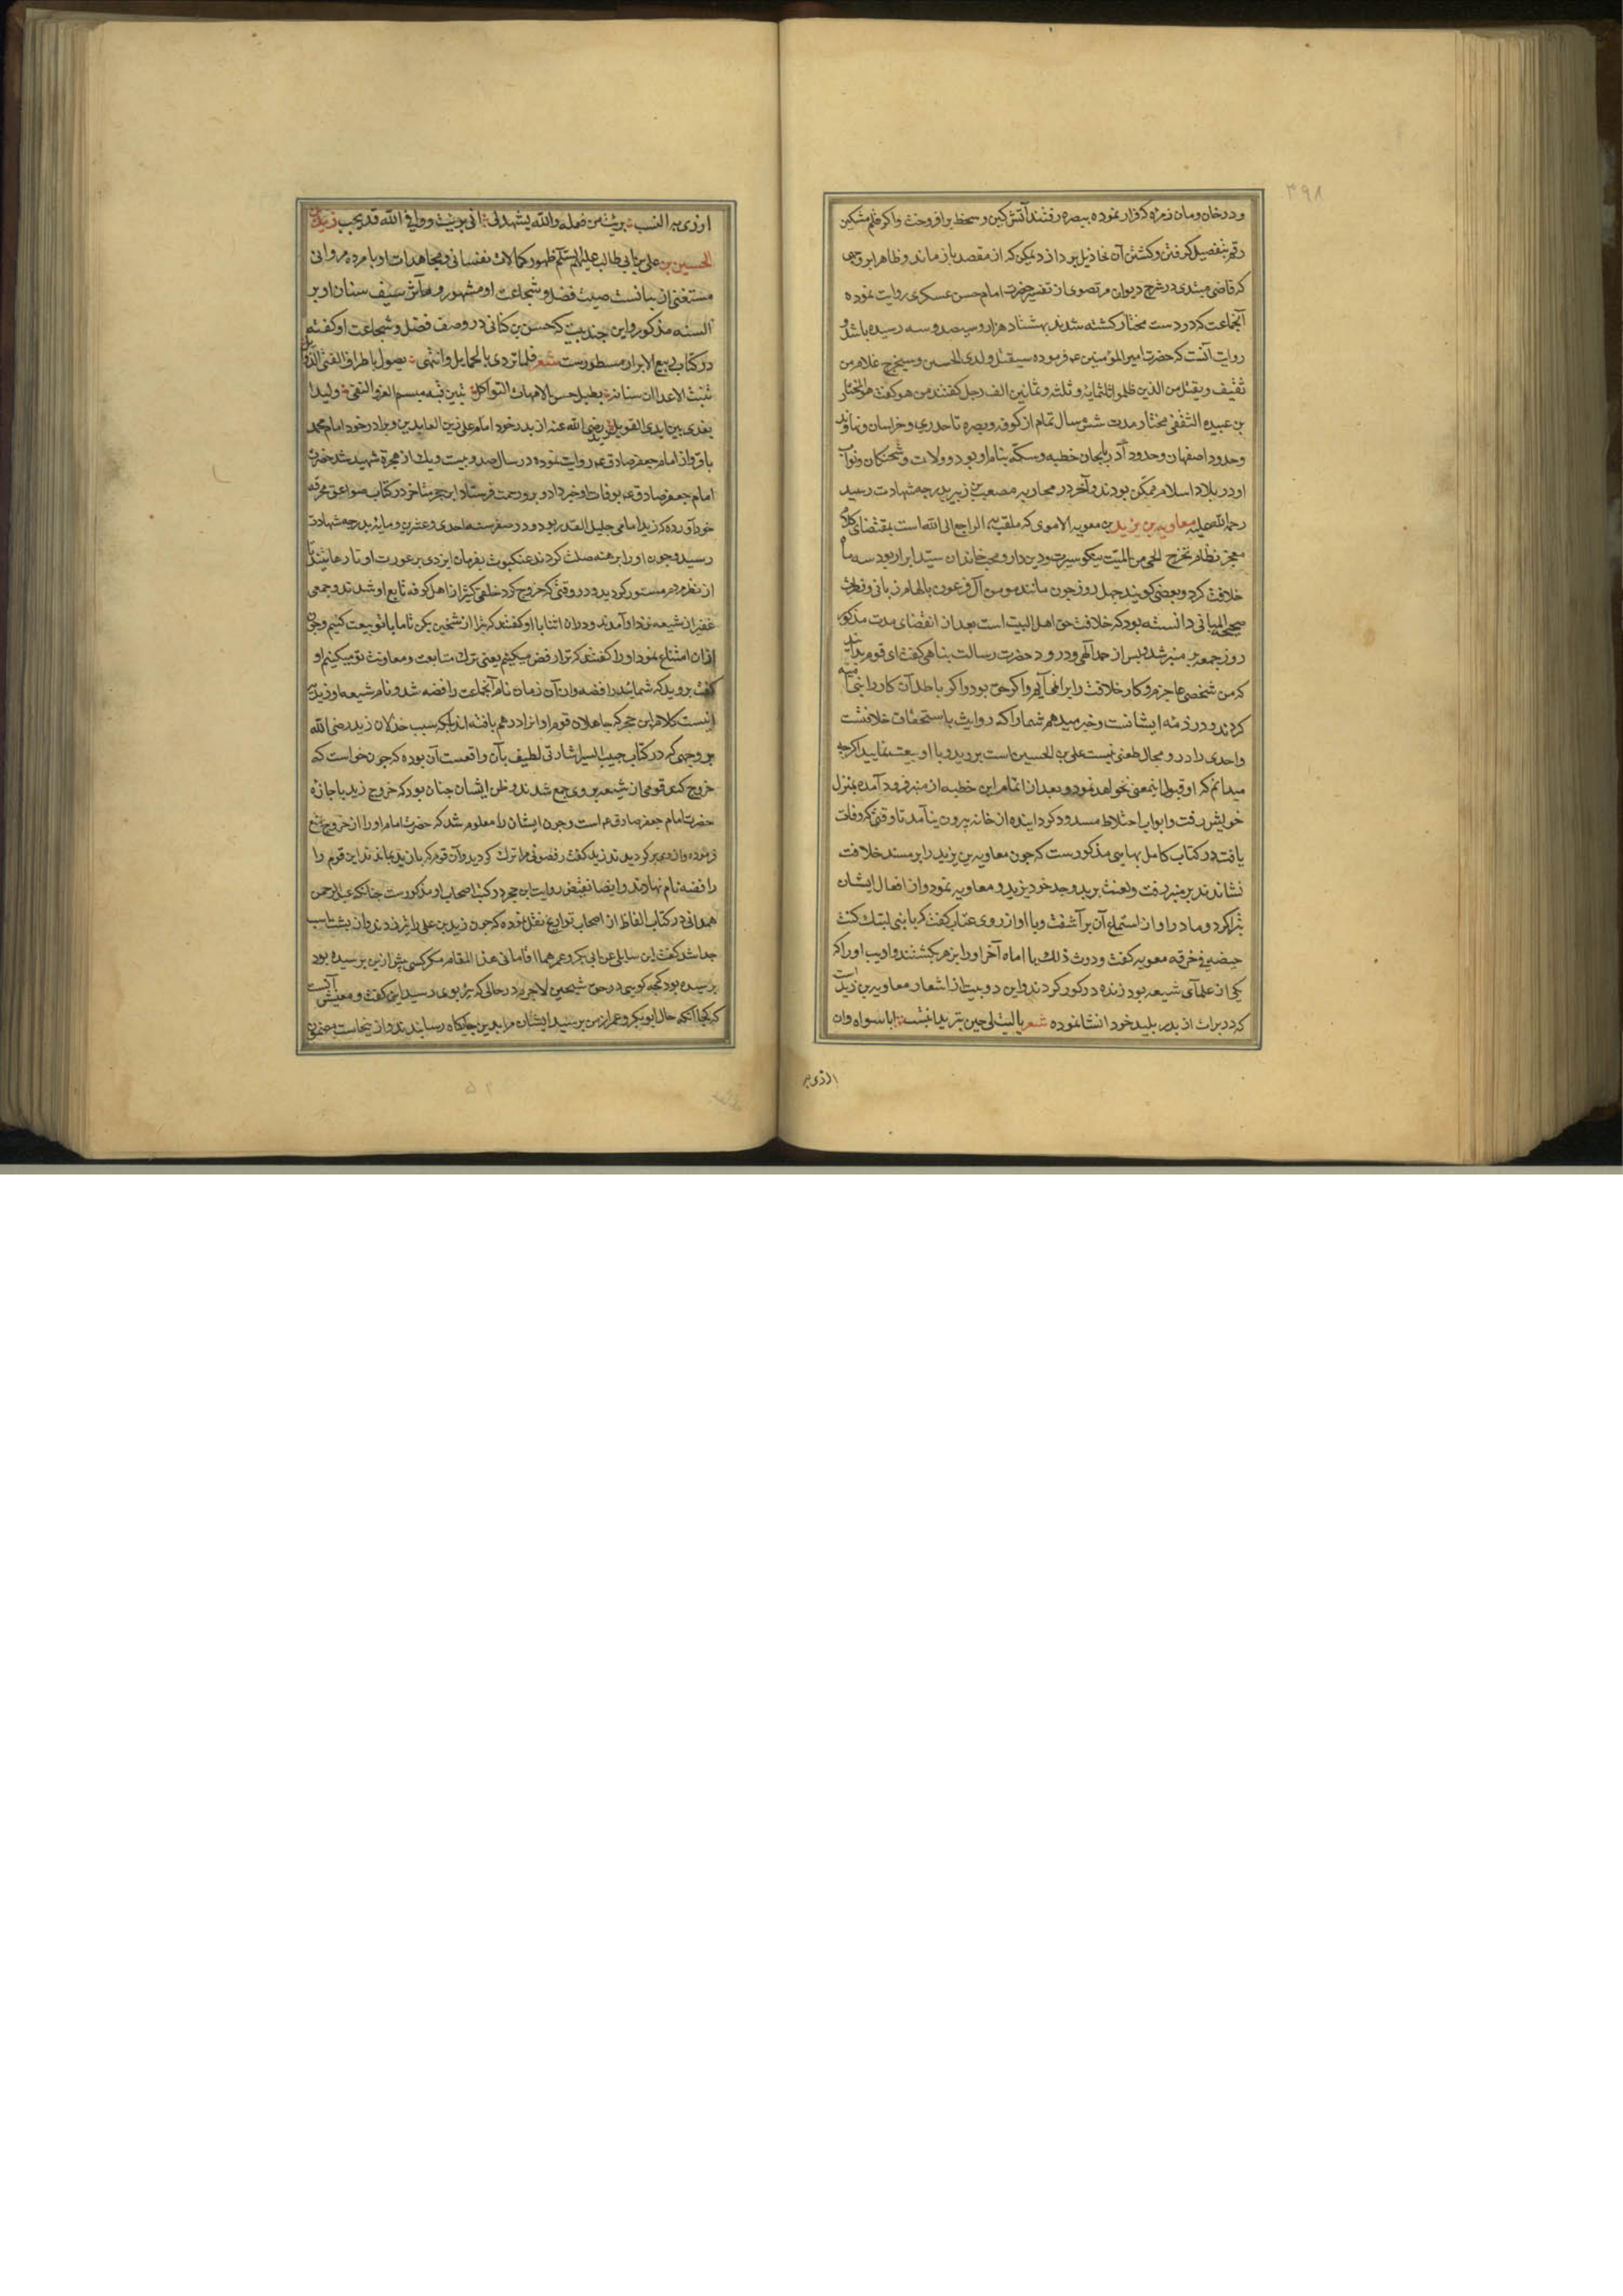 ۳۹۸
و در خان ومان نزده که فرار نموده ببصره رفتند آتش کین و سخط برافروخت واکر قلم مشکین
رقم بتفصیل کرفتن وکشتن آن مخاذیل پردازد یمکن که از مقصد بازماند و ظاهرا بوجهی
که قاضی میبدی در شرح دیوان مرتضوی از تفسیر حضرت امام حسن عسکری روایت نموده
آنجماعت که در دست مختار کشته شدند بهشتاد هزار و سیصد و سه رسیده باشد و
روایت آنست که حضرت امیر المؤمنین ع م فرموده سیقتل ولدی الحسین وسیخرج غلام من
ثقیف ویقتل من الذین ظلموا ثلثمایة وثلثه وثمانین الف رجل کفتند من هو کفت هو المختار
بن عبیده الثقفی مختار مدت شش سال تمام از کوفه و بصره تا حد ری و خراسان و نهاوند
وحدود اصفهان وحدود آذربایجان خطبه وسکه بنام او بود و ولات و شحنکان ونواب
او در بلاد اسلام متمکن بودند وآخر در محاربه مصعب بن زبیر بدرجه شهادت رسید
رحمة الله علیه معاویه بن یزید بن معویه الاموی که ملقب به الراجع الی الله است بمقتضای کلام
معجز نظام تخرج الحی من المیت نیکو سیرت ودین دار ومحب خاندان سید ابرار بود سه ماه
خلافت کرد وبعضی کویند چهل روز چون مانند مومن آل فرعون بالهام ربانی و فطرت
صحیحه المبانی دانسته بود که خلافت حق اهل البیت است بعد از انقضای مدت مذکور
روز جمعه بر منبر شد وپس از حمد الهی ودرود حضرت رسالت پناهی کفت ای قوم بدانید
که من شخصی عاجزم وکار خلافت را بر نمی آیم واکر حق بود واکر باطل آن کار را بنی امیه
کردند و در ذمه ایشانست وخبر میدهم شما را که روایت باستحقاق خلافتست
واحدی را در و مجال طعنی نیست علی بن الحسین است بروید و با او بیعت نمایید اکرچه
میدانم که او قبول اینمعنی نخواهد نمود و بعد از اتمام این خطبه از منبر فرود آمده بمنزل
خویش رفت وابواب اختلاط مسدود کردانیده از خانه بیرون نیامد تا وقتی که وفات
یافت در کتاب کامل بهایی مذکورست که چون معاویه بن یزید را بر مسند خلافت
نشاندند بر منبر رفت ولعنت بر پدر وجد خود یزید و معاویه نمود و از افعال ایشان
تبرا کرد و مادر او از استماع آن برآشفت وبا او از روی عتاب کفت که یا بنی لیتک کنت
حیضه فی خرقه معویه کفت وددت ذلک یا اماه آخر او را بزهر بکشتند و ادیب او را که
یکی از علمای شیعه بود زنده در کور کردند واین دو بیت از اشعار معاویه بن یزید است
که در برات از پدر پلید خود انشا نموده شعر یا لیت لی حین یزید انتسب ابا سواه وان
الذی به
اوزی به النسب برئت من فعله والله یشهد لی انی برئت وذا فی الله قد یجب زید بن
الحسین بن علی بن ابی طالب علیهم السلم ظهور کمالات نفسانی ومجاهدات او با مرده مروانی
مستغنی از بیانست صیت فضل و شجاعت او مشهور و مآثر سیف سنان او بر
السنه مذکور واین چند بیت که حسن بن کنانی در وصف فضل وشجاعت او کفته
در کتاب ربیع الابرار مسطورست شعر فلما تردی بالحمایل وانتهی یصول باطراف القنی الذوابل
تبینت الاعدا ان سنانه یطیل حنین الامهات الثواکل تبین فیه میسم العز والتقی ولیدا
یفدی بین ایدی القوابل زید رضی الله عنه از پدر خود امام علی زین العابدین وبرادر خود امام محمد
باقر واز امام جعفر صادق ع م روایت نموده در سال صد و بیست ویک از هجرة شهید شد حضرت
امام جعفر صادق ع م بوفات او خبر داد وبرو رحمت فرستاد ابن حجر متاخر در کتاب صواعق محرقه
خود آورده که زید امامی جلیل القدر بود و در صفر سنه احدی وعشرین ومایة بدرجه شهادت
رسید وچون او را برهنه صلب کردند عنکبوت بفرمان ایزدی بر عورت او تار ها تنید تا
از نظر مردم مستور کردید و در وقتی که خروج کرد خلقی کثیر از اهل کوفه تابع او شدند وجمعی
غفیر از شیعه نزد او آمدند ودر ان اثنا با او کفتند که تبرا از شیخین بکن تا ما با تو بیعت کنیم وچون
از ان امتناع نمود او را کفتند که ترا رفض میکنیم یعنی ترک متابعت ومعاونت تو میکنیم او
کفت بروید که شمائید رافضه وازان زمان نام آنجماعت رافضه شد و نام شیعه او زیدیه
اینست کلام ابن حجر که جاهلان قوم او انرا درهم بافته اند بلکه سبب خذلان زید رضی الله
بر وجهی که در کتاب حبیب السیر اشارتی لطیف بآن واقعست آن بوده که چون خواست که
خروج کند قومی از شیعه بر وی جمع شدند وظن ایشان چنان بود که خروج زید باجازه
حضرت امام جعفر صادق ع م است وچون ایشان را معلوم شد که حضرت امام او را از خروج منع
فرموده واز وی برکردیدند زید کفت رفضونی مرا ترک کردید وآن قوم که با زید بماندند این قوم را
رافضه نام نهادند وایضا نقیض روایت ابن حجر در کتب اصحاب او مذکورست چنانکه عبد الرحمن
همدانی در کتاب الفاظ از اصحاب تواریخ نقل نموده که چون زید بن علی را تیر زدند واز پشت اسب
جدا شد کفت این سایلی عن ابی بکر وعمر هما اقامانی هذا المقام مکر کسی پیش ازین پرسیده بود
پرسیده بود که چه کویی در حق شیخین لاجرم در حالی که تیر بوی رسید این کفت و معنیش آنست
که کجا آنکه حال ابو بکر وعمر از من پرسید ایشان مرا بدین جایکاه رسانیدند واز ینجاست مضمون